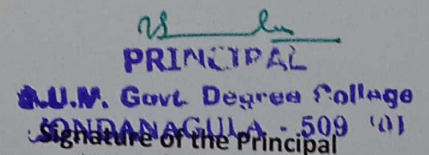 PRINCIPAL
Govt. Degree College
JONDANAGULA - 509
Signature of the Principal